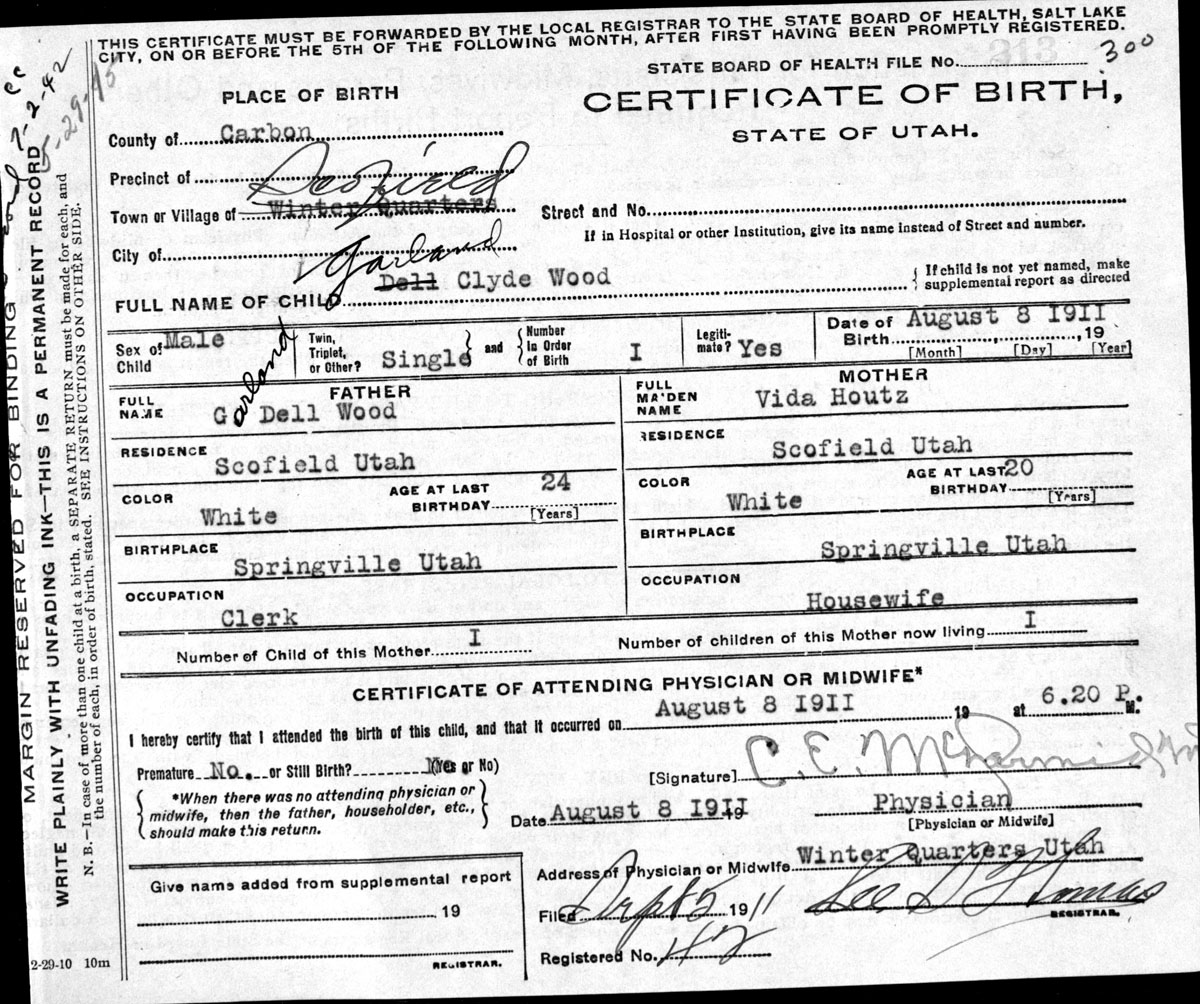 THIS CERTIFICATE MUST BE FORWARDED BY THE LOCAL REGISTRAR TO THE STATE BOARD OF HEALTH, SALT LAKE
CITY, ON OR BEFORE THE 5TH OF THE FOLLOWING MONTH, AFTER FIRST HAVING BEEN PROMPTLY REGISTERED.
STATE BOARD OF HEALTH FILE No. 300
PLACE OF BIRTH
CERTIFICATE OF BIRTH,
STATE OF UTAH.
County of Carbon
Precinct of Scofield
Town or Village of Winter Quarters
Street and No.
If in Hospital or other Institution, give its name instead of Street and number.
City of
Garland
FULL NAME OF CHILD Dell Clyde Wood
If child is not yet named, make
supplemental report as directed
Sex of Child Male
Twin, Triplet, or Other? Single and Number In Order of Birth I
Legiti-mate? Yes
Date of Birth August 8 1911 , 19
[Month] [Day] [Year]
FATHER
FULL NAME Garland Dell Wood
RESIDENCE
Scofield Utah
COLOR White
AGE AT LAST BIRTHDAY 24 [Years]
BIRTHPLACE
Springville Utah
OCCUPATION
Clerk
MOTHER
FULL MAIDEN NAME Vida Houtz
RESIDENCE
Scofield Utah
COLOR White
AGE AT LAST BIRTHDAY 20 [Years]
BIRTHPLACE
Springville Utah
OCCUPATION
Housewife
Number of Child of this Mother I
Number of children of this Mother now living I
CERTIFICATE OF ATTENDING PHYSICIAN OR MIDWIFE*
I hereby certify that I attended the birth of this child, and that it occurred on August 8 1911 19 at 6.20 P. M.
Premature No. or Still Birth? (Yes or No)
[Signature] C. E.
*When there was no attending physician or
midwife, then the father, householder, etc.,
should make this return.
Date August 8 1911 19
Physician
[Physician or Midwife]
Address of Physician or Midwife Winter Quarters Utah
Give name added from supplemental report
19
REGISTRAR.
Filed 1911
Thomas
REGISTRAR.
Registered No. 42
2-29-10 10m
MARGIN RESERVED FOR BINDING
WRITE PLAINLY WITH UNFADING INK—THIS IS A PERMANENT RECORD
N. B.—In case of more than one child at a birth, a SEPARATE RETURN must be made for each, and
the number of each, in order of birth, stated. SEE INSTRUCTIONS ON OTHER SIDE.